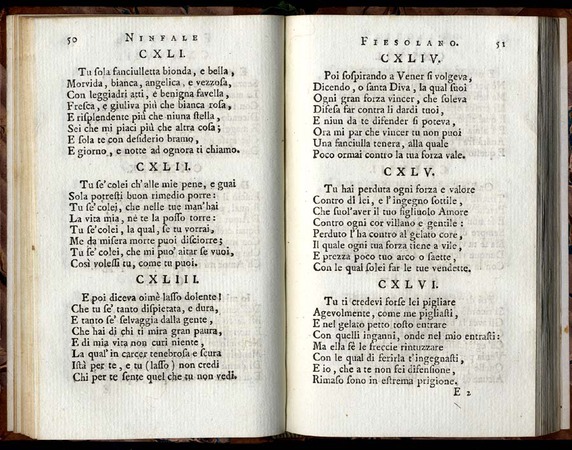 50 NINFALE
CXLI.
Tu sola fanciulletta bionda, e bella,
Morvida, bianca, angelica, e vezzosa,
Con leggiadri atti, e benigna favella,
Fresca, e giuliva più che bianca rosa,
E risplendente più che niuna stella,
Sei che mi piaci più che altra cosa;
E sola te con desiderio bramo,
E giorno, e notte ad ognora ti chiamo.
CXLII.
Tu se' colei ch'alle mie pene, e guai
Sola potresti buon rimedio porre:
Tu se' colei, che nelle tue man' hai
La vita mia, nè te la posso torre:
Tu se' colei, la qual, se tu vorrai,
Me da misera morte puoi disciorre;
Tu se' colei, che mi puo' aitar se vuoi,
Così volessi tu, come tu puoi.
CXLIII.
E poi diceva oimè lasso dolente!
Che tu se' tanto dispietata, e dura,
E tanto se' selvaggia dalla gente,
Che hai di chi ti mira gran paura,
E di mia vita non curi niente,
La qual' in carcer tenebrosa e scura
Istà per te, e tu (lasso) non credi
Chi per te sente quel che tu non vedi.
FIESOLANO. 51
CXLIV.
Poi sospirando a Vener si volgeva,
Dicendo, o santa Diva, la qual suoi
Ogni gran forza vincer, che soleva
Difesa far contra li dardi tuoi,
E niun da te difender si poteva,
Ora mi par che vincer tu non puoi
Una fanciulla tenera, alla quale
Poco ormai contro la tua forza vale.
CXLV.
Tu hai perduta ogni forza e valore
Contro di lei, e l'ingegno sottile,
Che suol'aver il tuo figliuolo Amore
Contro ogni cor villano e gentile:
Perduto l'ha contro al gelato core,
Il quale ogni tua forza tiene a vile,
E prezza poco tuo arco o saette,
Con le qual solei far le tue vendette.
CXLVI.
Tu ti credevi forse lei pigliare
Agevolmente, come me pigliasti,
E nel gelato petto tosto entrare
Con quelli inganni, onde nel mio entrasti:
Ma ella fè le freccie rintuzzare
Con le qual di ferirla t'ingegnasti,
E io, che a te non fei difensione,
Rimaso sono in estrema prigione.
E 2